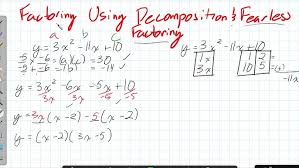 Factoring Using Decomposition & Fearless
Factoring
a b c
y = 3x² - 11x + 10
-5 x -6 = (a)(c) 30
-5 + -6 = (b) -11
y = 3x² - 6x - 5x + 10
3x 3x -5 -5
y = 3x (x - 2) - 5 (x - 2)
y = (x - 2)(3x - 5)
y = 3x² - 11x + 10
1x 1 2
3x 10 5
-11x